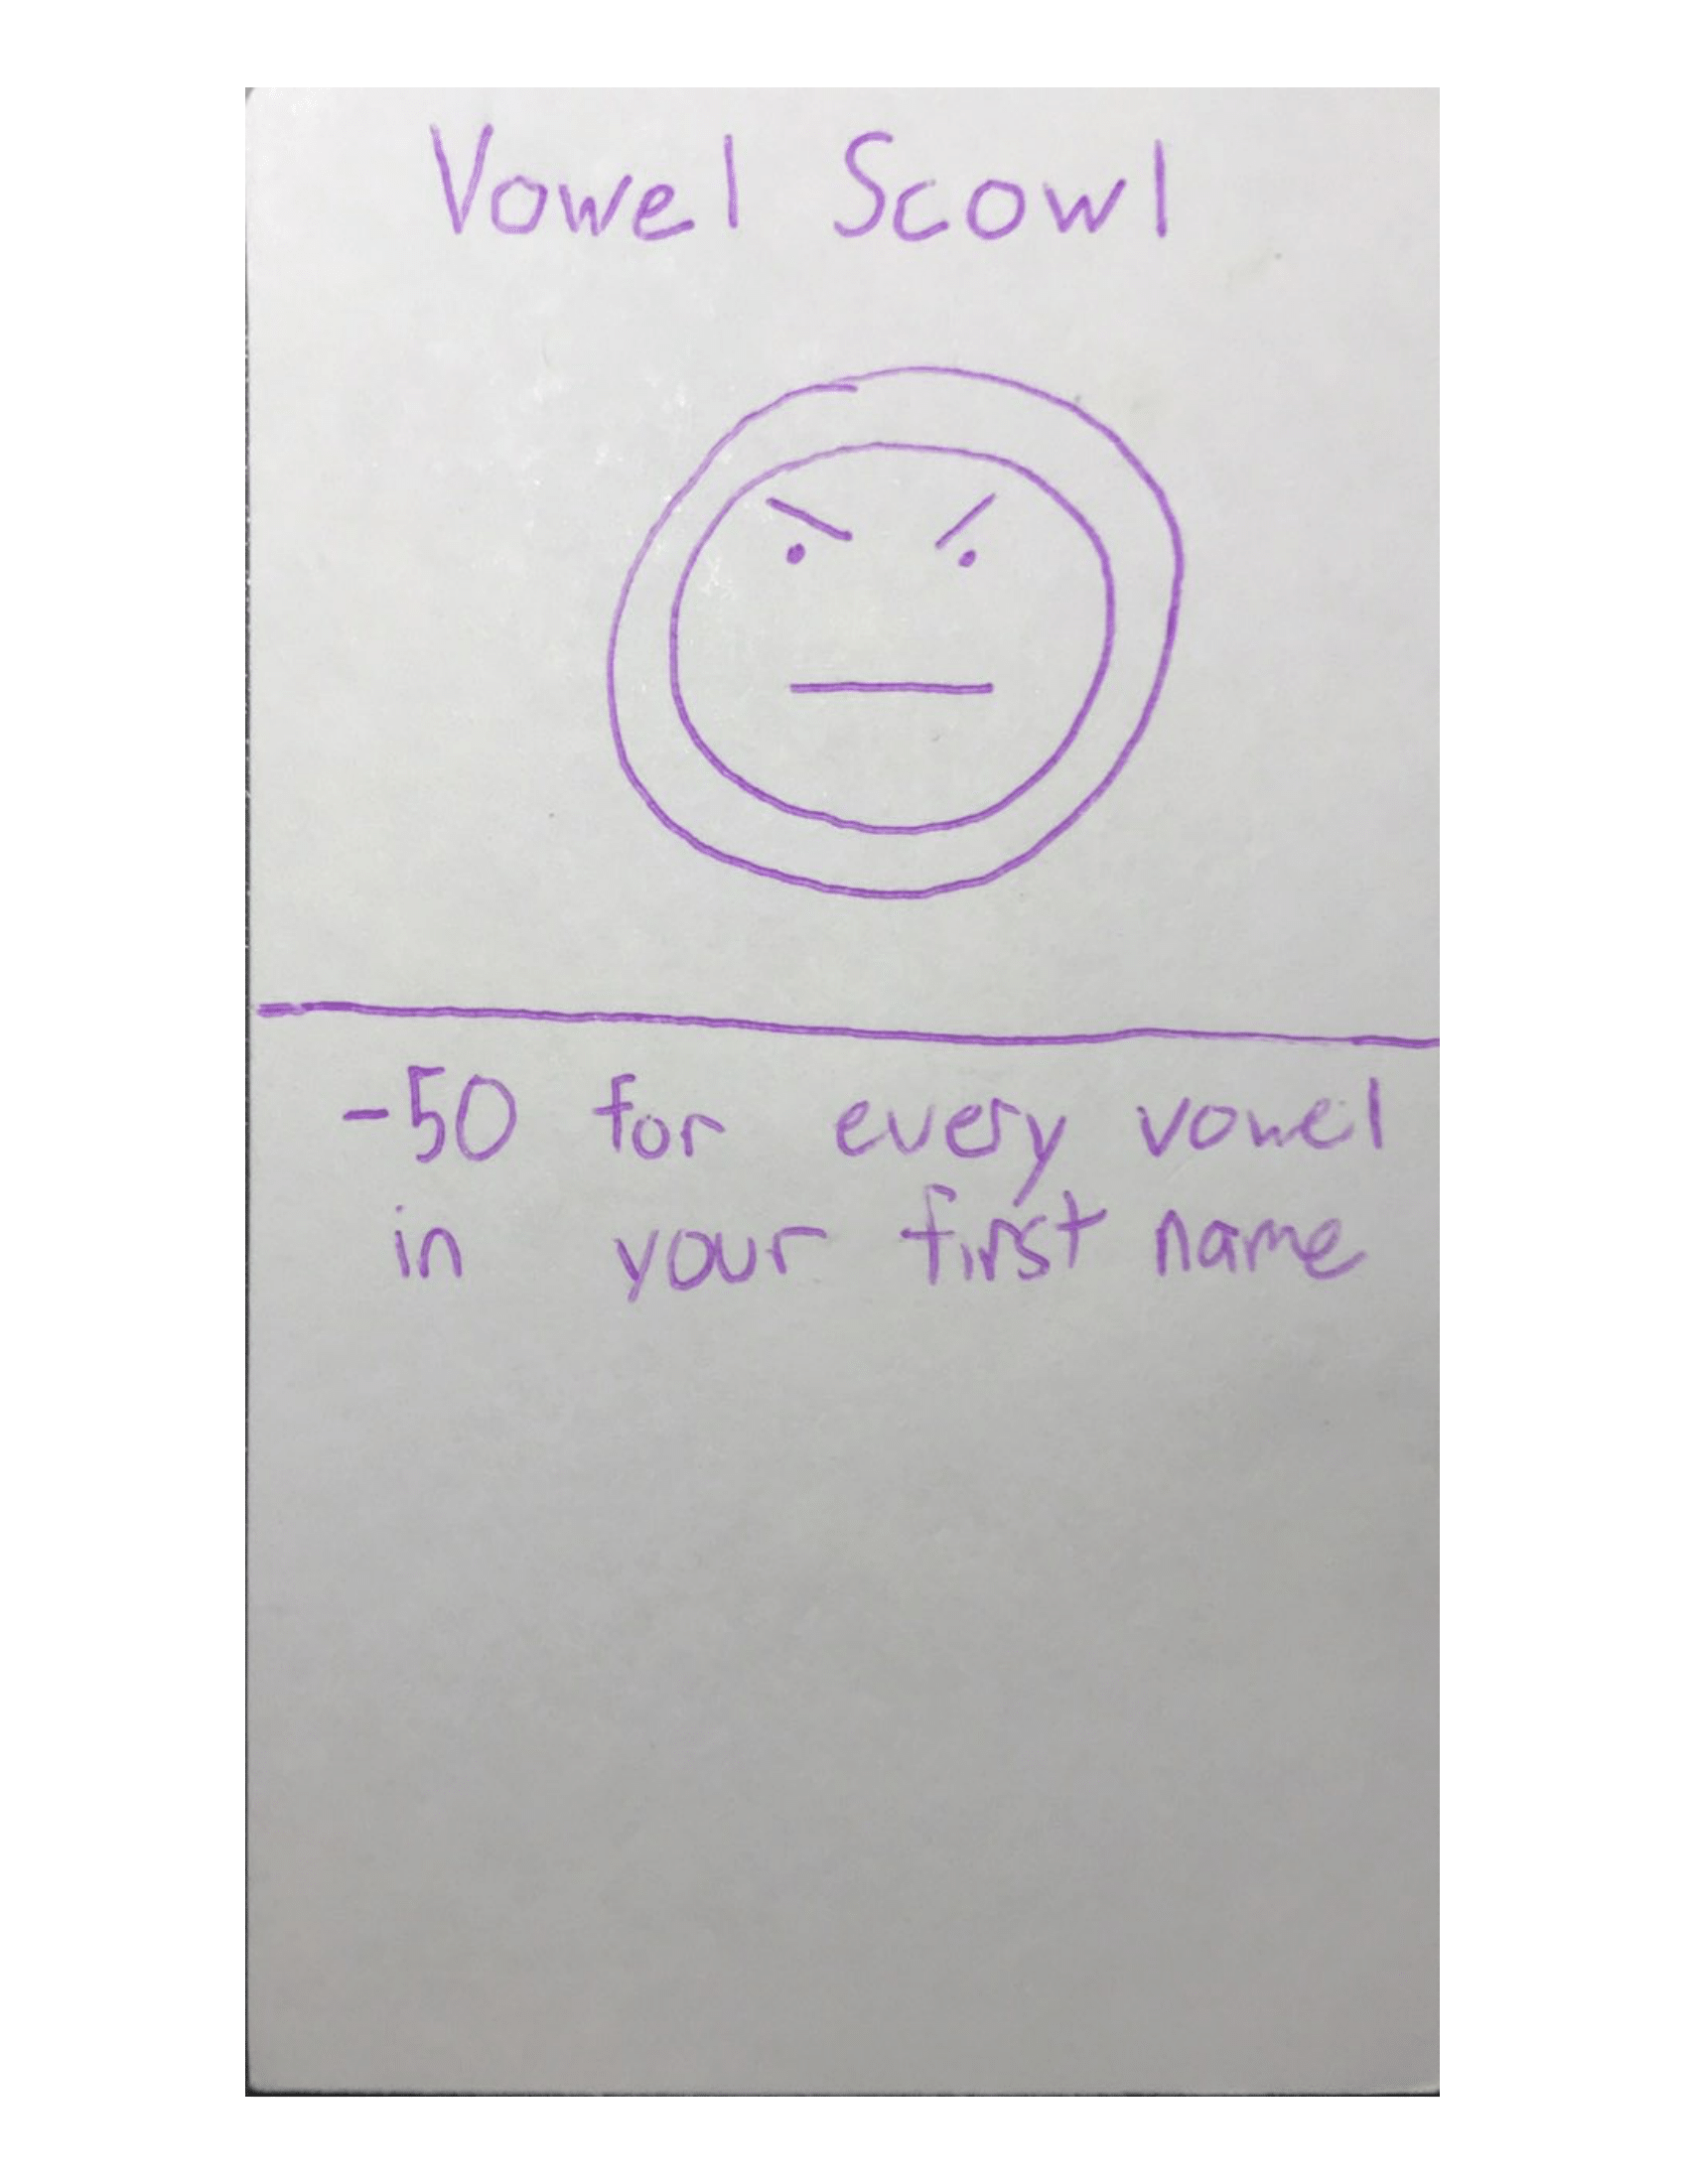 Vowel Scowl
-50 for every vowel
in your first name